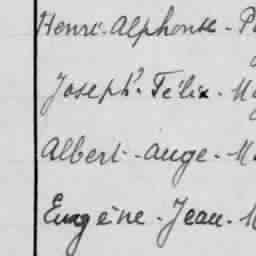 Henri-Alphonse-
Joseph-Félix-
Albert-ange-
Eugène-Jean-